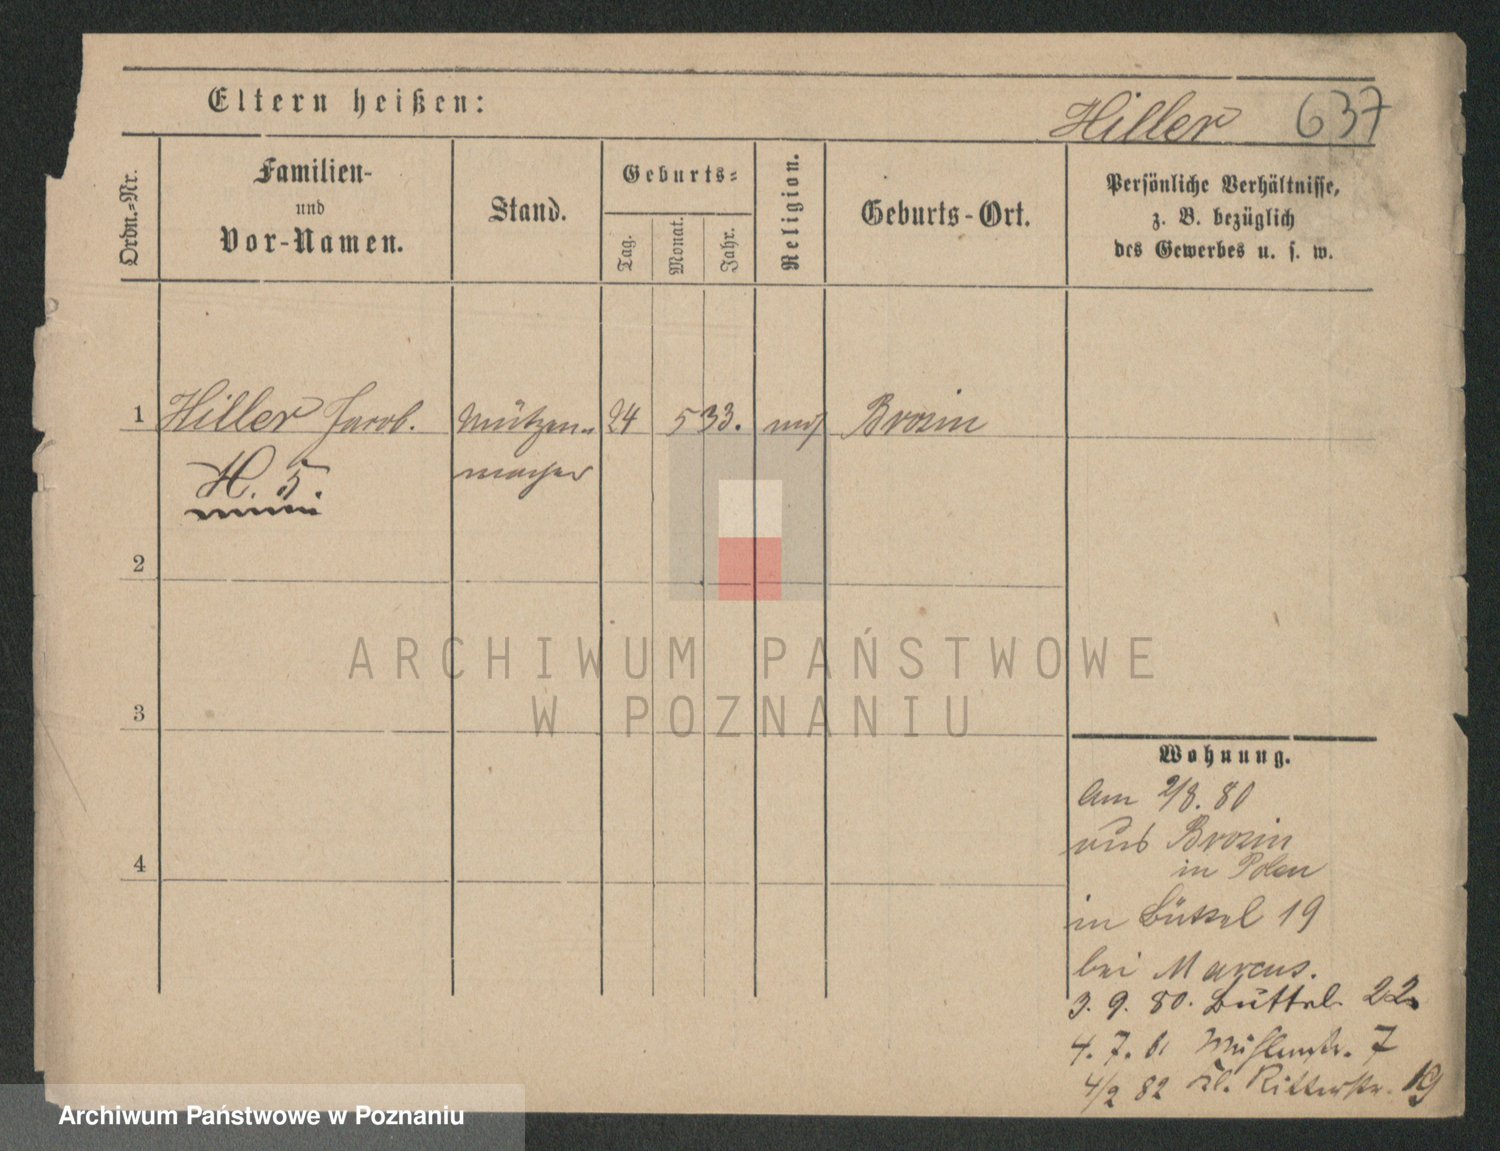 Eltern heißen:
Hiller 637
Ordn.-Nr.
Familien-
und
Vor-Namen.
Stand.
Geburts-
Tag.
Monat.
Jahr.
Religion.
Geburts-Ort.
Persönliche Verhältnisse,
z. B. bezüglich
des Gewerbes u. s. w.
1 Hiller Jacob. Mützen- 24 5 33. mos Brozin
macher
H. 5.
2
3
4
ARCHIWUM PAŃSTWOWE
W POZNANIU
Wohnung.
Am 2/8. 80
aus Brozin
in Polen
in Büttel 19
bei Marcus.
3. 9. 80. Büttel 22
4. 7. 81 Mühlenstr. 7
4/2 82 Kl. Ritterstr. 19
Archiwum Państwowe w Poznaniu